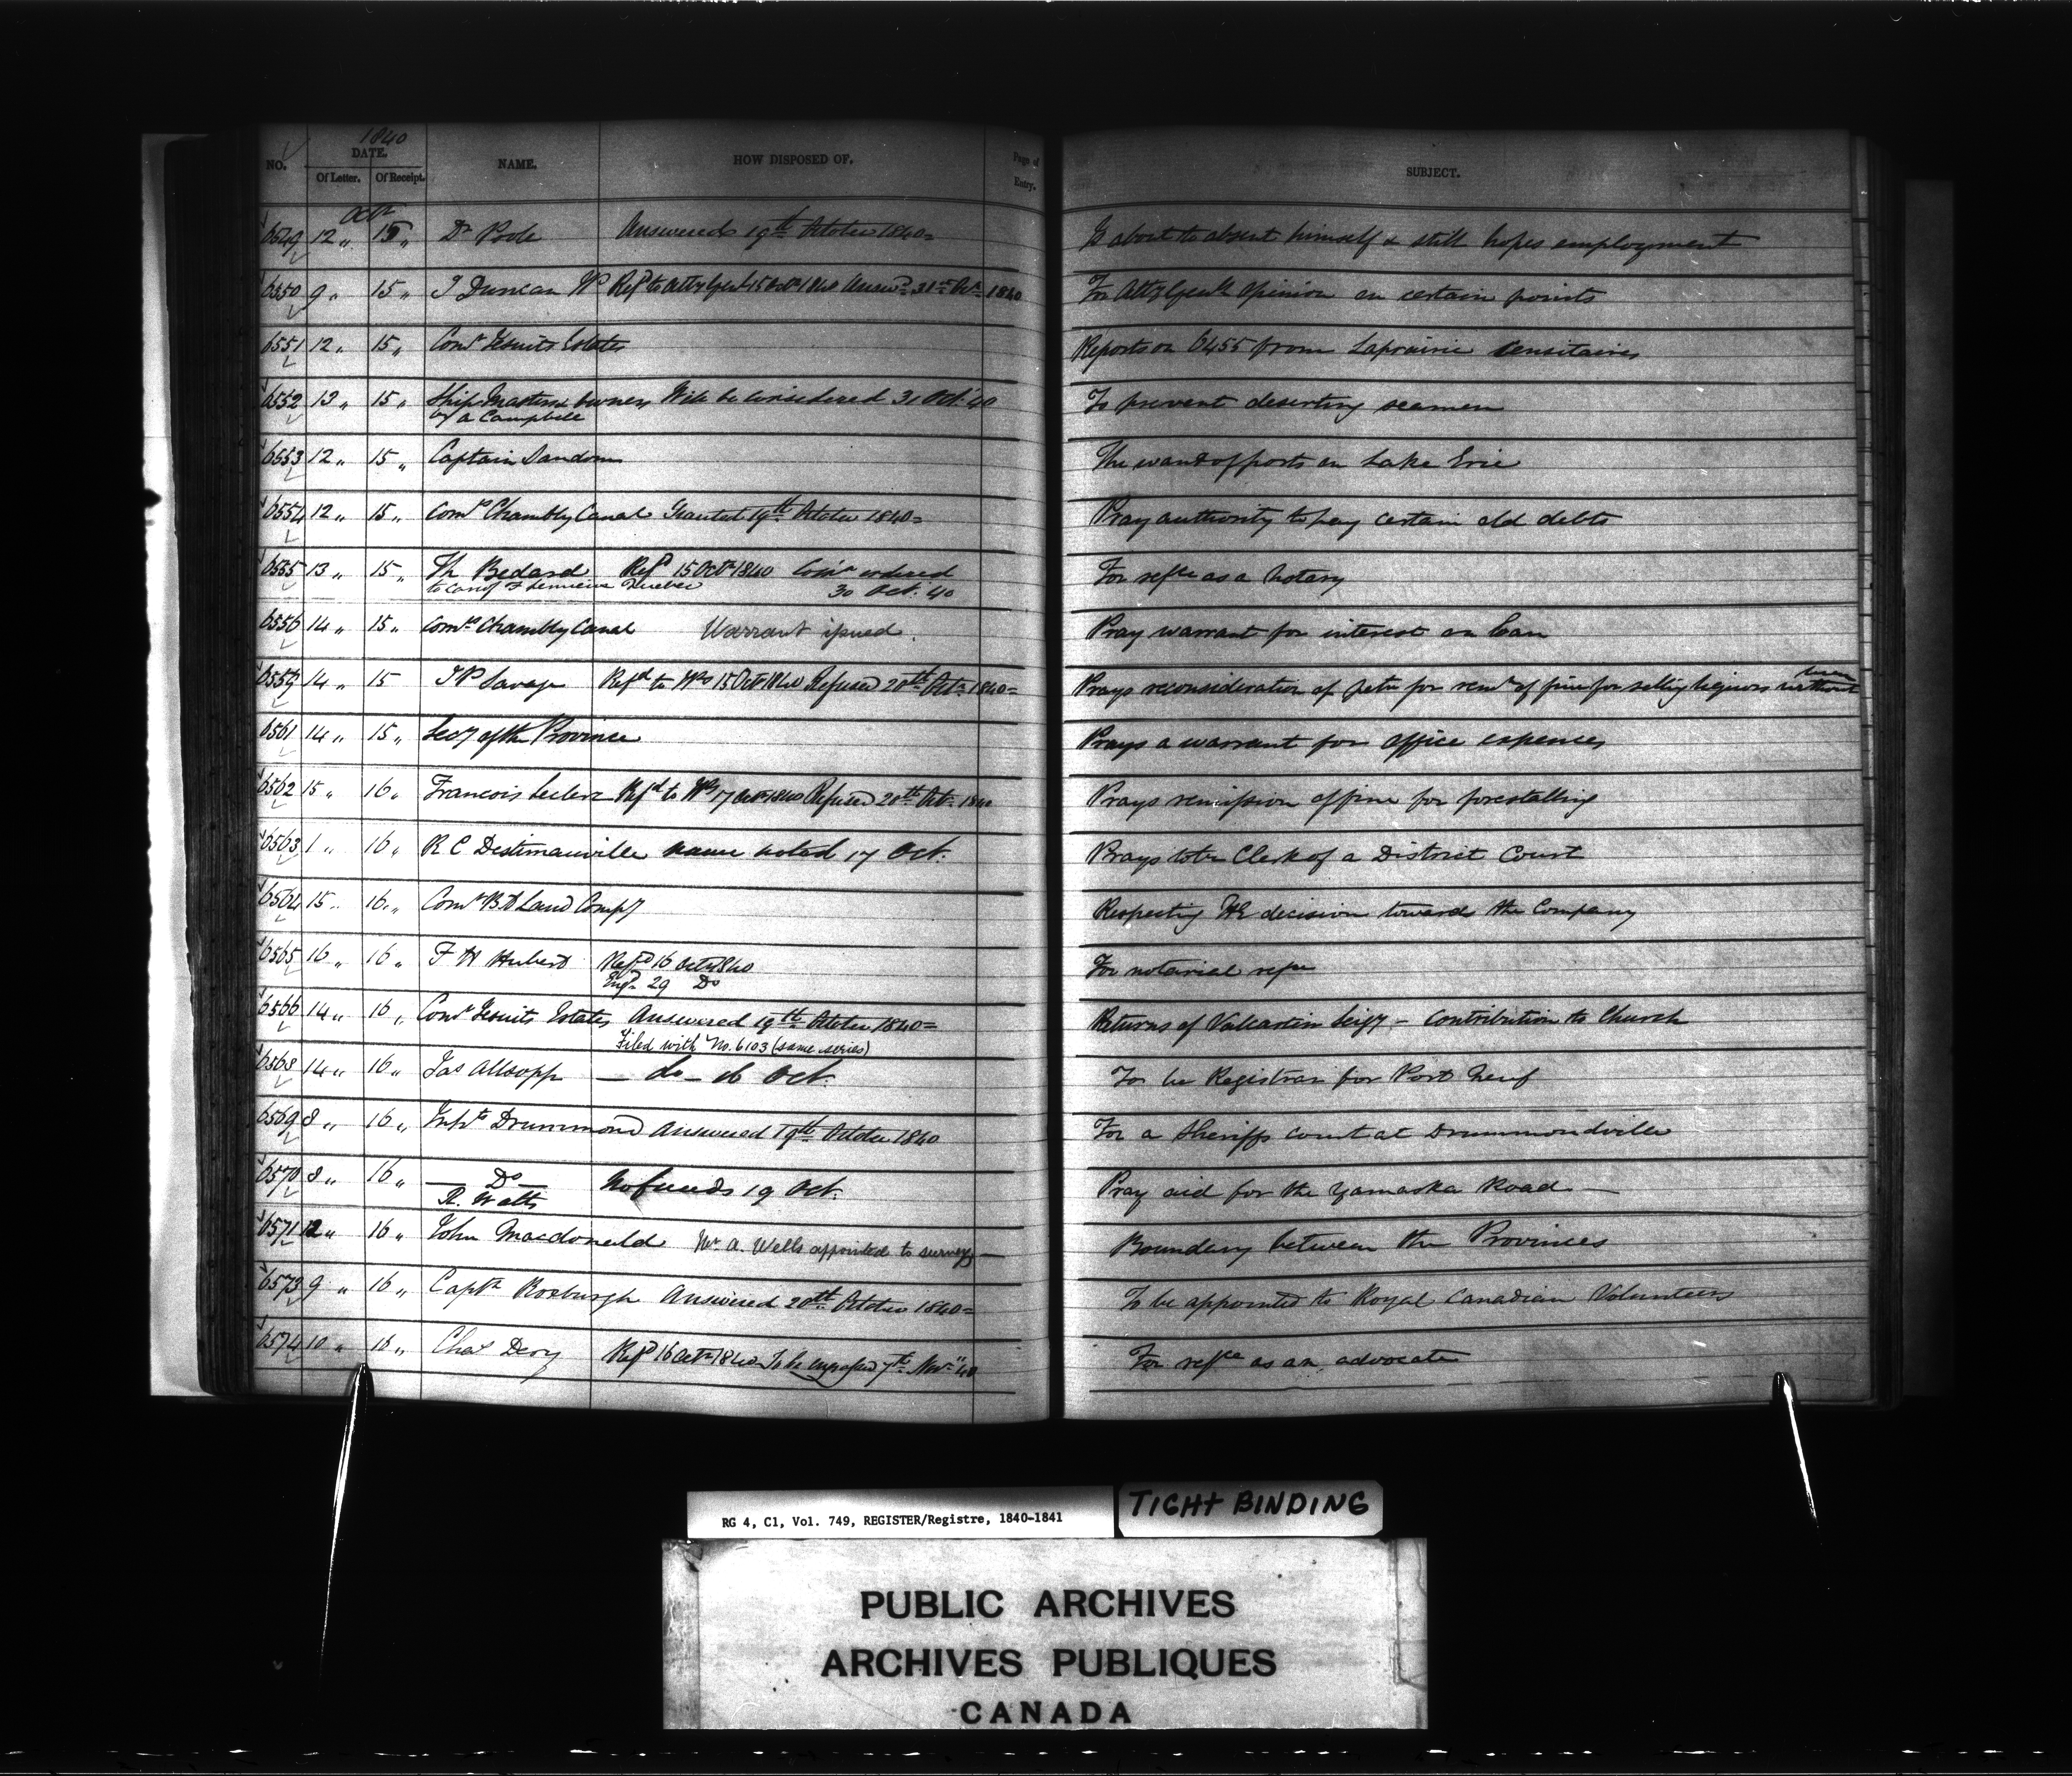 1840
NO. DATE. NAME. HOW DISPOSED OF. Page of Entry. SUBJECT.
Of Letter. Of Receipt.
Octr
6549 12 „ 15 „ Dr Poole Answered 19th October 1840= Is about to absent himself & still hopes employment
6550 9 „ 15 „ J Duncan Refd to Atty Genl 15 Octr 1840 Answd 31st Octr 1840 For Atty Genls opinion on certain points
6551 12 „ 15 „ Comr Jesuits Estates Reports on 6455 from Laprairie Censitaires
6552 13 „ 15 „ Ship Masters & owners Will be considered 31 Oct. 40 To prevent deserting seamen
by A Campbell
6553 12 „ 15 „ Captain Sandom The want of ports on Lake Erie
6554 12 „ 15 „ Comrs Chambly Canal Granted 19th October 1840= Pray authority to pay certain old debts
6555 13 „ 15 „ Th Bedard Refd 15 Octr 1840 Comn ordered For refce as a Notary
to care of F Lemieux Quebec 30 Oct. 40
6556 14 „ 15 „ Comrs Chambly Canal Warrant issued. Pray warrant for interest on loan
6559 14 „ 15 J P Savage Refd to 15 Octr 1840 Refused 20th Octr 1840= Prays reconsideration of petn for remn of fine for selling liquors without
6561 14 „ 15 „ Secy of the Province Prays a warrant for office expences
6562 15 „ 16 „ Francois Leclerc Refd to 17 Octr 1840 Refused 20th Octr 1840 Prays remission of fine for forestalling
6563 1 „ 16 „ R C Destimauville name noted 17 Oct. Prays to be Clerk of a District Court
6564 15 „ 16 „ Comr B A Land Compy Respecting HE decision toward the Company
6565 16 „ 16 „ F H Hubert Refd 16 Octr 1840 For notarial refce
Engd 29 Do
6566 14 „ 16 „ Comr Jesuits Estates Answered 19th October 1840= Returns of Valcartier Seigy - Contribution to Church
Filed with No. 6103 (same series)
6568 14 „ 16 „ Jas Allsopp — do — 16 Oct. To be Registrar for Port Neuf
6569 8 „ 16 „ Inhts Drummond Answered 19th October 1840 For a Sheriffs court at Drummondville
6570 8 „ 16 „ — Do — No funds 19 Oct. Pray aid for the Yamaska Road —
R. Watts
6571 12 „ 16 „ John Macdonald Mr. A. Wells appointed to survey — Boundary between the Provinces
6573 9 „ 16 „ Captn Roxburgh Answered 20th October 1840= To be appointed to Royal Canadian Volunteers
6574 10 „ 16 „ Chas Dery Refd 16 Octr 1840 To be engrossed 7th Novr "40 For refce as an advocate
RG 4, C1, Vol. 749, REGISTER/Registre, 1840-1841
TIGHT BINDING
PUBLIC ARCHIVES
ARCHIVES PUBLIQUES
CANADA